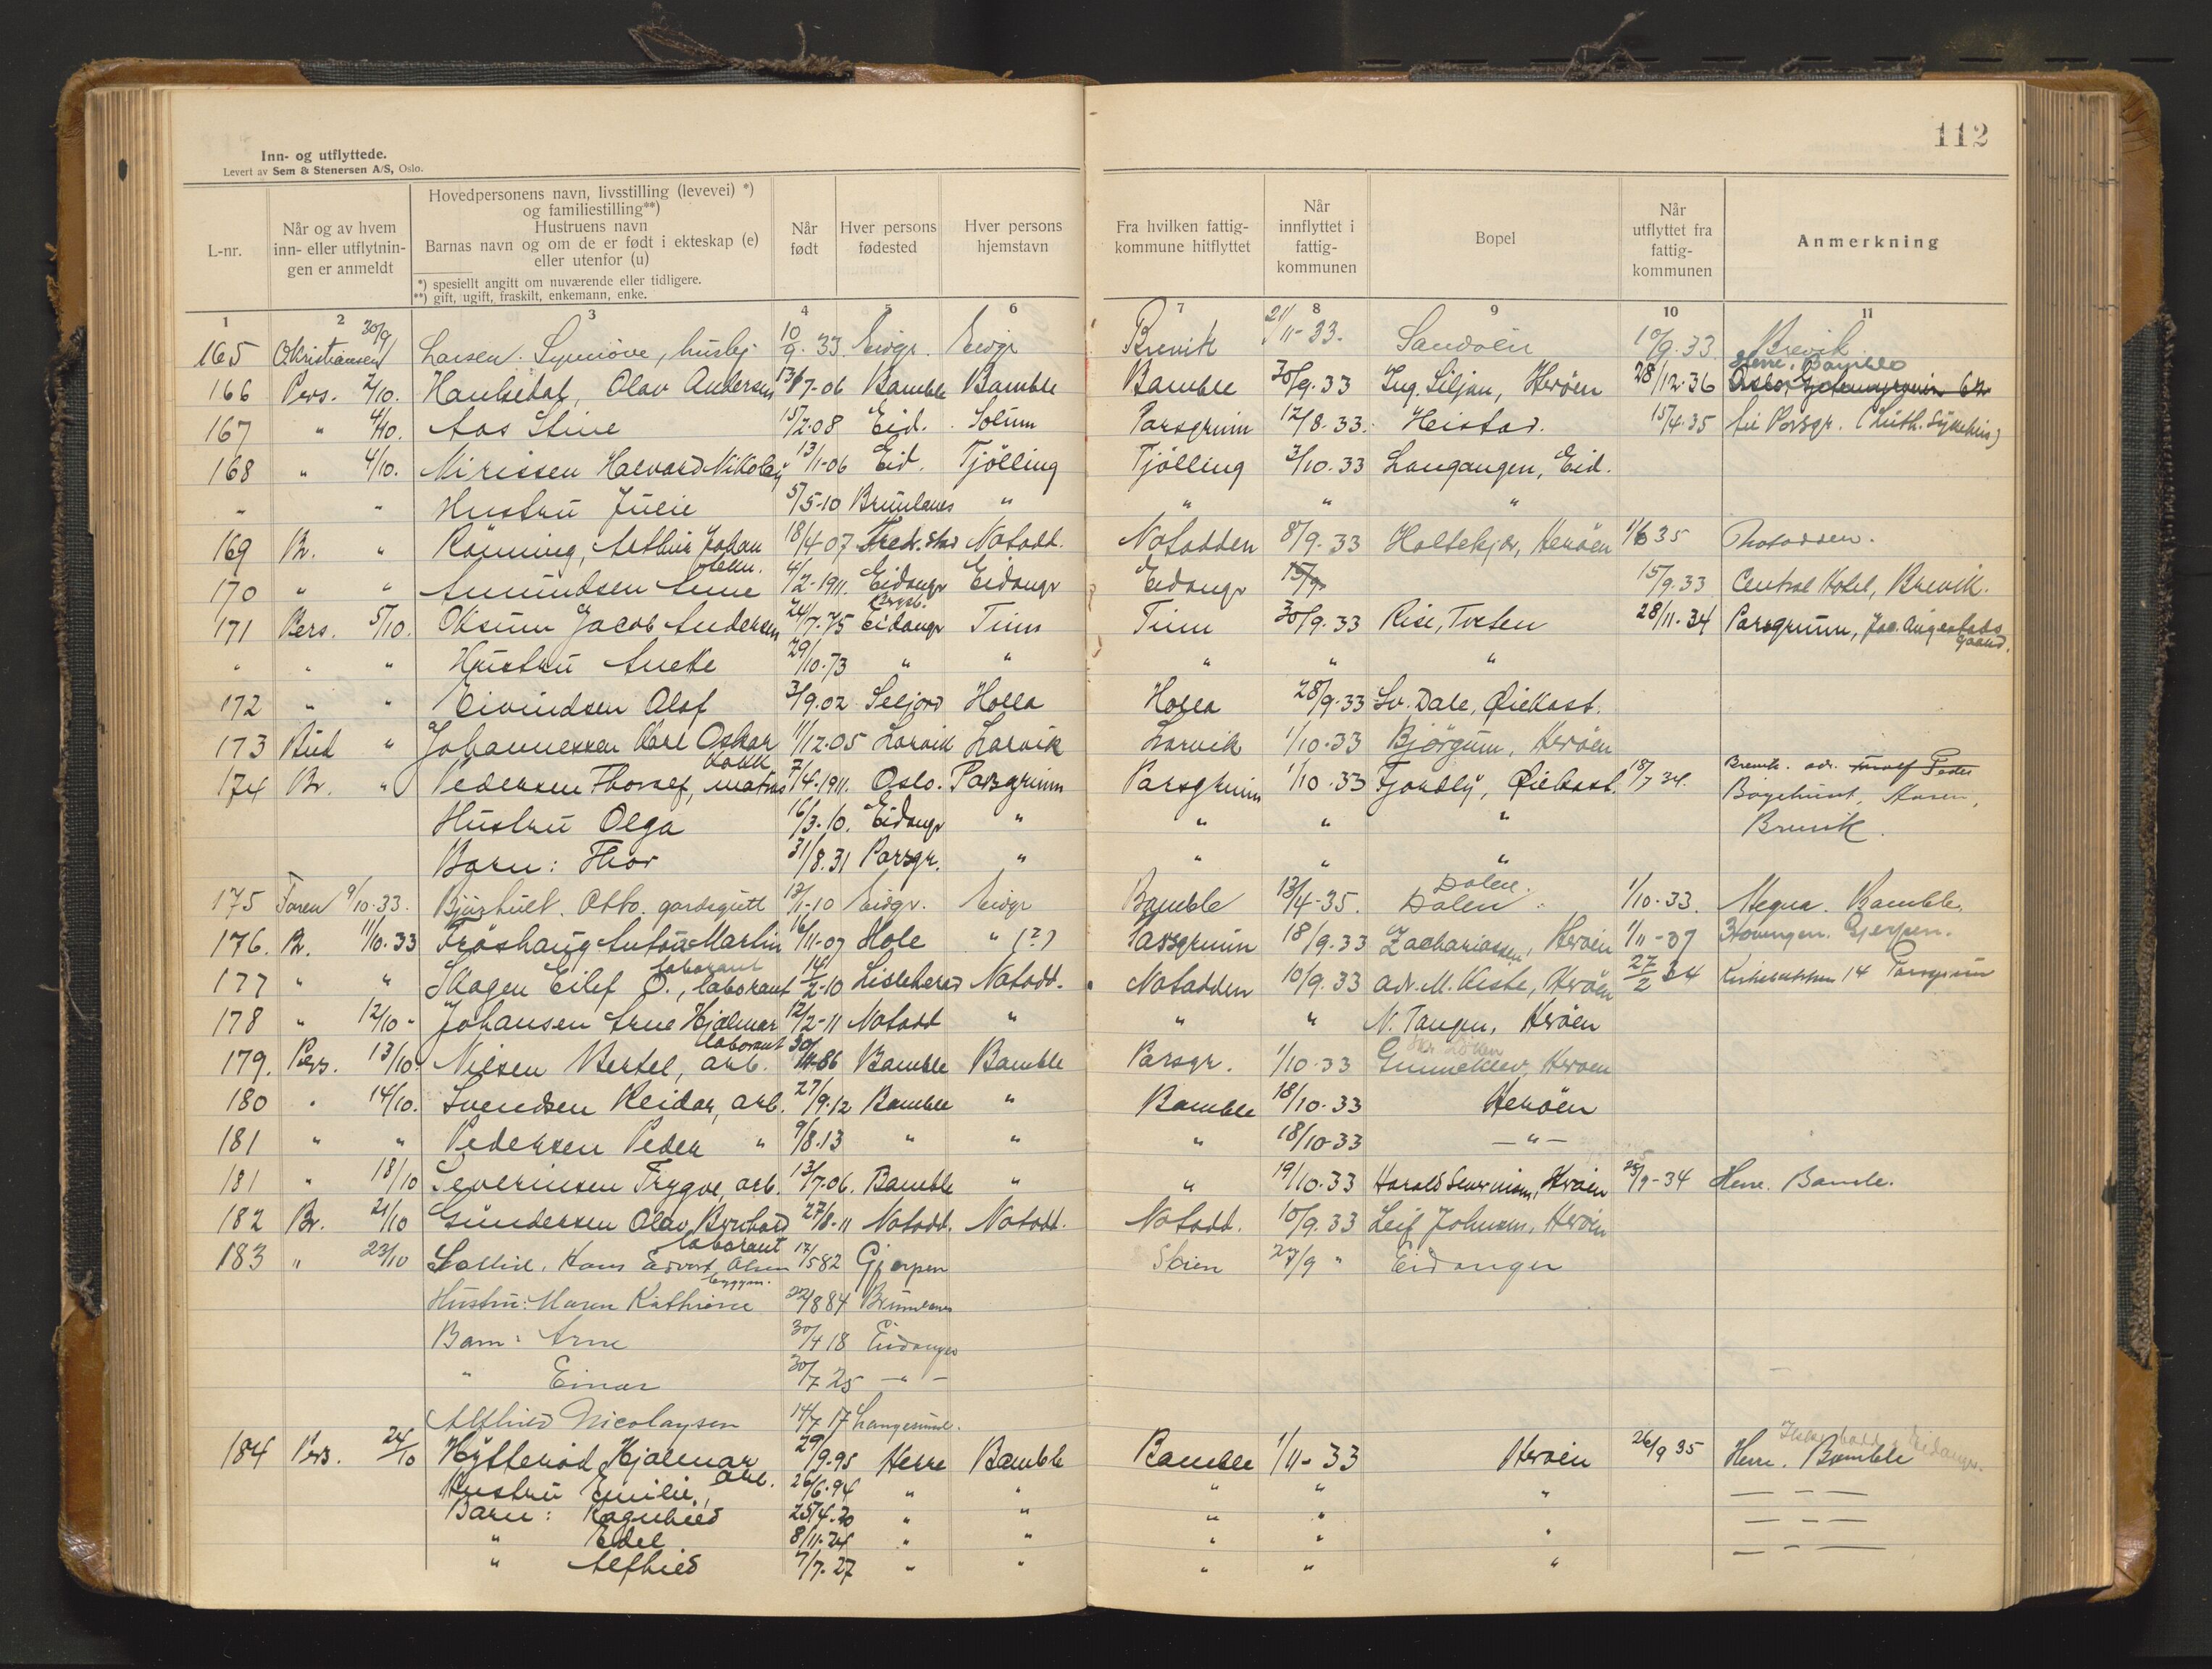 112
Inn- og utflyttede.
Levert av Sem & Stenersen A/S, Oslo.
L-nr.
Når og av hvem inn- eller utflytningen er anmeldt
Hovedpersonens navn, livsstilling (levevei) *) og familiestilling**)
Hustruens navn
Barnas navn og om de er født i ekteskap (e) eller utenfor (u)
*) spesiellt angitt om nuværende eller tidligere.
**) gift, ugift, fraskilt, enkemann, enke.
Når født
Hver persons fødested
Hver persons hjemstavn
Fra hvilken fattigkommune hitflyttet
Når innflyttet i fattigkommunen
Bopel
Når utflyttet fra fattigkommunen
Anmerkning
1 2 3 4 5 6 7 8 9 10 11
165 Okristiansen 30/9 Larsen. Synnöve, huslej. 10/9.33 Eidgr. Eidgr Brevik 21/11-33. Sandöen 10/9.33 Brevik
166 Pers. 2/10. Haukedal, Olav Andersen 13/7-06 Bamble Bamble Bamble 30/9.33 Ing. Siljan, Heröen 28/12.36 Herre, Bamble
167 " 4/10. Aas Stine 15/2.08 Eid. Solum Porsgrunn 12/8.33. Heistad. 15/4.35 til Porsgr. (Luth. Sykehus)
168 " 4/10. Nirissen Halvard Nikolay 13/1-06 Eid. Tjölling Tjölling 3/10.33 Langangen, Eid.
" " Hustru Julie 5/5-10 Brunlanes " " " "
169 Br. " Rönning, Arthur Johan 18/4-07 Fredr.stad Notodd. Notodden 8/9.33 Holtekjær, Heröen 1/6 35 Notodden.
170 " " Amundsen Anne 4/2-1911. Eidangr Eidangr Eidangr 15/9 15/9.33 Central Hotel, Brevik.
171 Pers. 5/10. Oksum Jacob Andersen 24/7.75 Eidangr Tinn Tinn 30/9.33 Rise, Tveten 28/11.34 Porsgrunn, Jac. gaard.
" " " Hustru Anette 29/10.73 " " " " "
172 " " Eivindsen Olaf 3/9.02 Seljord Holla Holla 28/9.33 Sv. Dale, Öiekast.
173 Bud " Johannessen Karl Oskar 1/12.05 Larvik Larvik Larvik 1/10.33 Björgum, Heröen
174 Br. " Pedersen Thorolf, matros 7/4-1911. Oslo. Porsgrunn Porsgrunn 1/10.33 Fjordly, Öiekast. 18/7 34. Brevik. adr.
Hustru Olga 16/3.10. Eidangr " " " " Brevik.
Barn: Thor 31/8.31 Porsgr. " " " "
175 Foren 9/10.33. Bjuzhult. Otto. gardsgutt 13/1-10 Eidgr. Eidgr Bamble 13/4-35. Dalen. 1/10.33. Stegna. Bamble.
176. Br. 11/10.33 Fröshaug Anton Martin 16/11-07 Hole " (?) Porsgrunn 18/9.33 Zachariassen, Heröen 1/11-37 Hovengen. Gjerpen.
177 " " Skogen Eilef O., laborant 14/2-10 Lisleherad Notodd. Notodden 10/9.33 adr. M. Kiste, Heröen 27/2 34 14 Porsgrunn
178 " 12/10- Johansen Arne Hjalmar laborant 12/2-11 Notodd " " " N. Tangen, Heröen
179. Pers. 13/10. Nilsen Bertel, arb. Bamble Bamble Porsgr. 1/10.33 Gunneklev, Heröen
180 " 14/10. Svendsen Reidar, arb. 27/9.12 Bamble " Bamble 18/10.33 Heröen
181 " " Pedersen Peder " 9/8.13 " " " 18/10-33 - " -
181 " 18/10 Severinsen Trygve, arb. 13/7-06. Bamble " " 19/10.33 Harald Severinsen, Heröen 25/9-34 Herre. Bamble.
182 Br. 21/10 Gundersen Olav Bernhard laborant 27/8-11 Notodd. Notodd. Notodd. 10/9.33 Leif Johnsen, Heröen
183 " 23/10 Sollid, Hans Edvart Olsen byggm. 17/5 82 Gjerpen Skien 27/9 " Eidanger
Hustru: Maren Kathrine 22/8 84 Brunlanes
Barn: Arne 30/4 18 Eidanger
" Einar 30/7 25 - " -
Alfhild Nicolaysen 14/7 17 Langesund.
184 Pers. 24/10 Hytteröd Hjalmar arb. 29/9.95 Herre Bamble Bamble 1/11-33 Heröen 26/9 35 Herre. Bamble
Hustru Emilie, 26/6.94 " " " " "
Barn: Ragnhild 25/4.20 " " " "
" Edel 8/11.24 " " " " "
" Alfhild 7/7.27 " " " " "